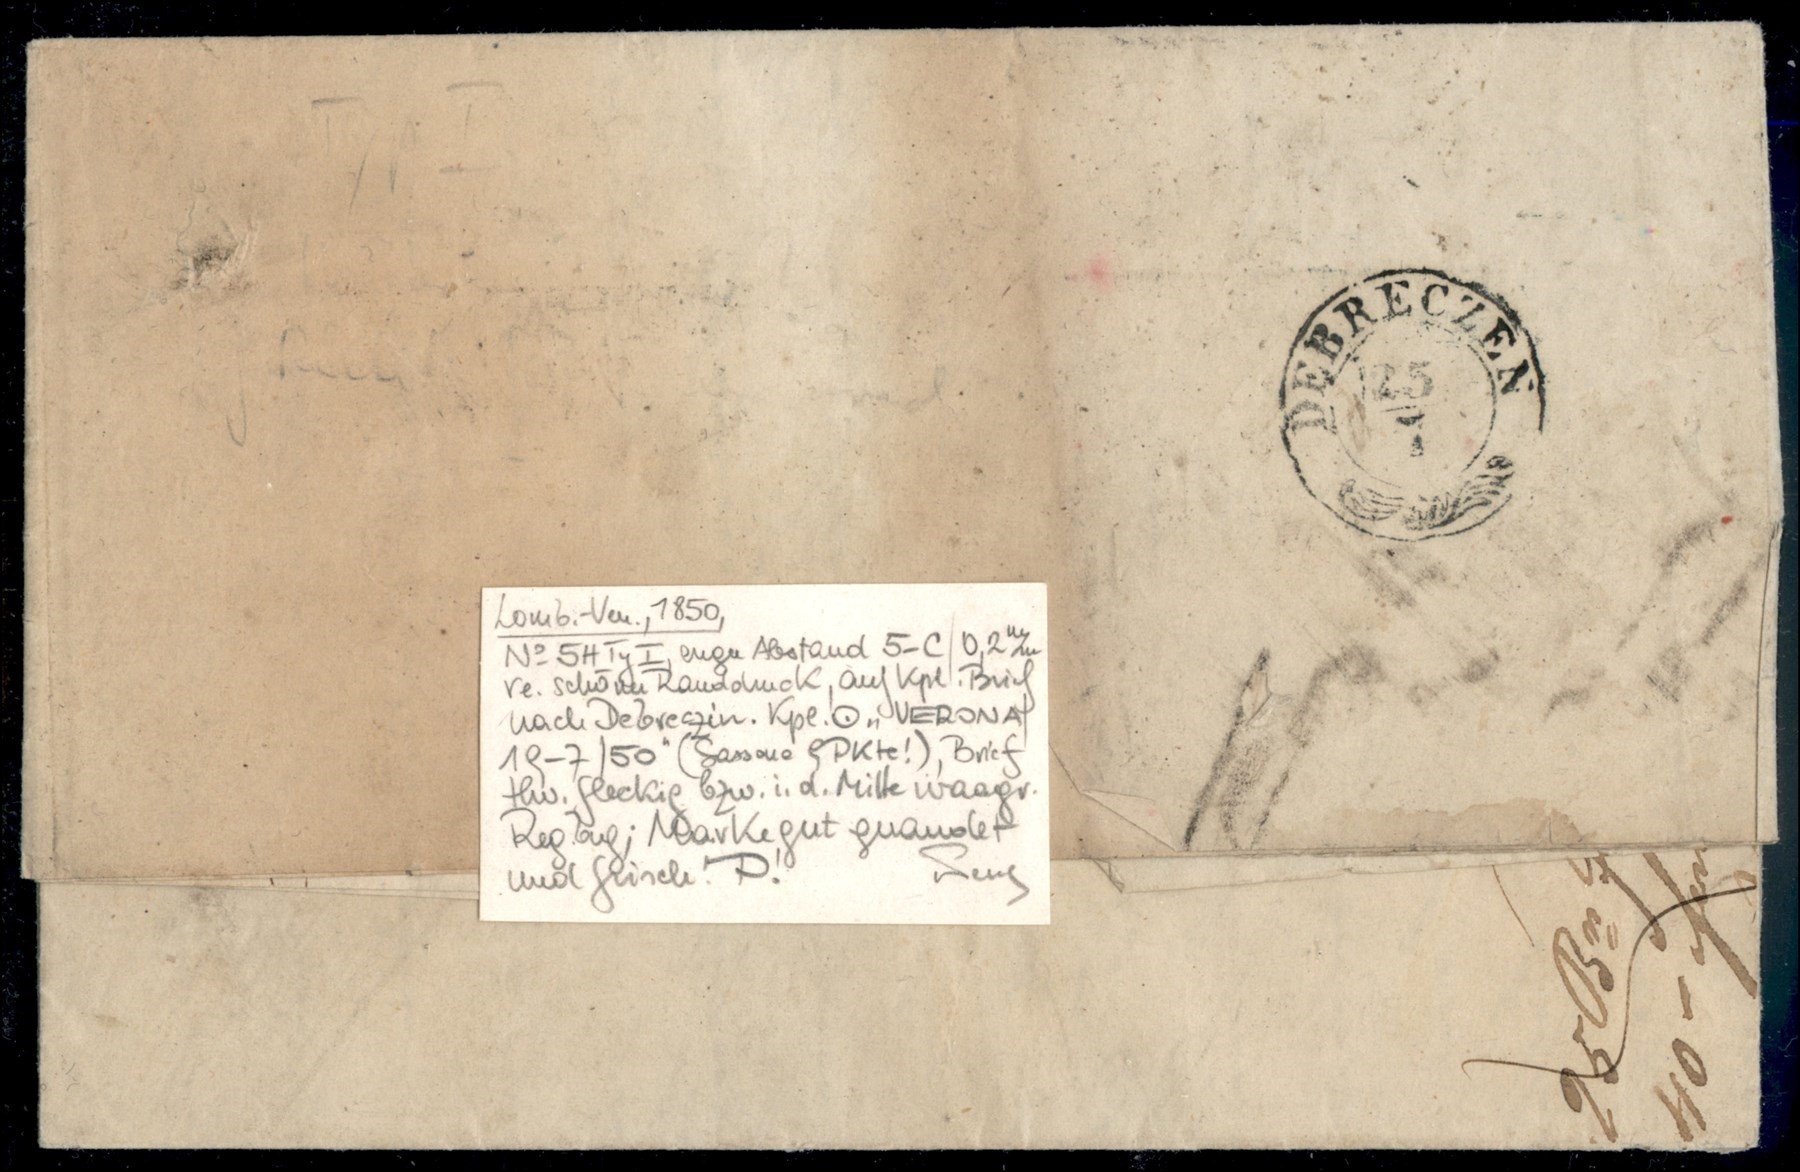 I Ty
DEBRECZEN
25
7
Lomb.-Ven., 1850,
Nº 5H Ty I, enger Abstand 5-C / 0,2 mm
re. schöner Randdruck, auf kpl. Brief
nach Debreczin. Kpl. ⊙ „VERONA
19-7/50" (Sassone 5 Pkte!), Brief
tlw. fleckig bzw. i. d. Mitte waagr.
Reg.bug; Marke gut gerandet
und frisch! P!
25
40 -